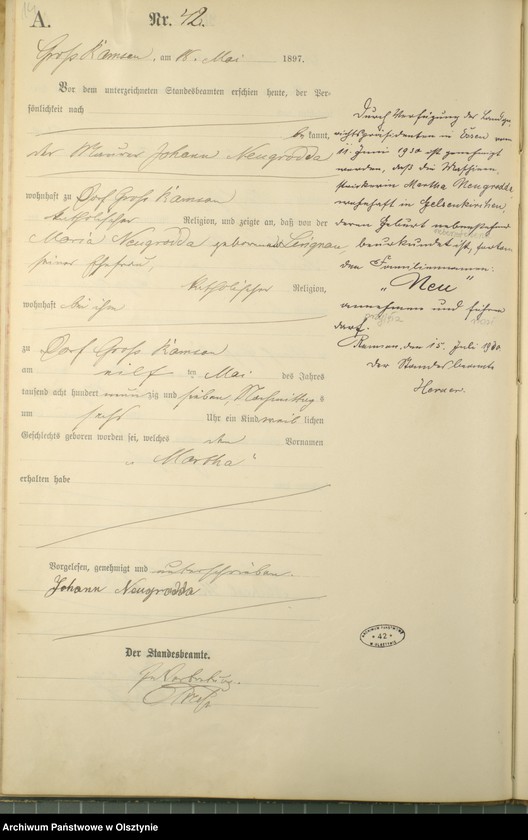 A.
Nr. 42.
Groß Ramsau, am 18. Mai 1897.
Vor dem unterzeichneten Standesbeamten erschien heute, der Per-
sönlichkeit nach
be kannt,
der Maurer Johann Neugrodda
wohnhaft zu Dorf Groß Ramsau
katholischer Religion, und zeigte an, daß von der
Maria Neugrodda geborenen
seiner Ehefrau,
katholischer Religion,
wohnhaft bei ihm
zu Dorf Groß Ramsau
am elf ten Mai des Jahres
tausend acht hundert neun zig und sieben, Nachmittags
um sechs Uhr ein Kind weib lichen
Geschlechts geboren worden sei, welches den Vornamen
„Martha“
erhalten habe
Vorgelesen, genehmigt und unterschrieben.
Johann Neugrodda
Der Standesbeamte.
In Vertretung.
Durch Verfügung des Landge-
richtspräsidenten in Essen vom
11. Juni 1930 ist genehmigt
worden, daß die
Martha Neugrodda
wohnhaft in Gelsenkirchen
deren Geburt nebenstehend
beurkundet ist, fortan
den Familiennamen:
„Neu“
annehmen und führen
darf.
Ramsau, den 15. Juli 1930
Der Standesbeamte
ARCHIWUM PAŃSTWOWE
* 42 *
W OLSZTYNIE
Archiwum Państwowe w Olsztynie